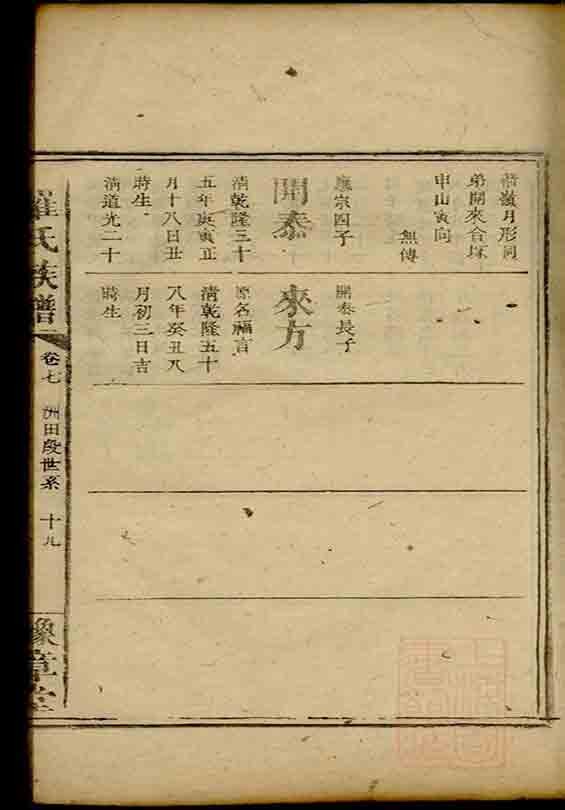 形同
弟開來合塚
申山寅向
無傳
應宗四子
開泰
清乾隆三十
五年庚寅正
月十八日丑
時生
清道光二十
開泰長子
來方
原名福言
清乾隆五十
八年癸丑八
月初三日吉
時生
羅氏族譜
卷七
洲田段世系
十九
豫章堂